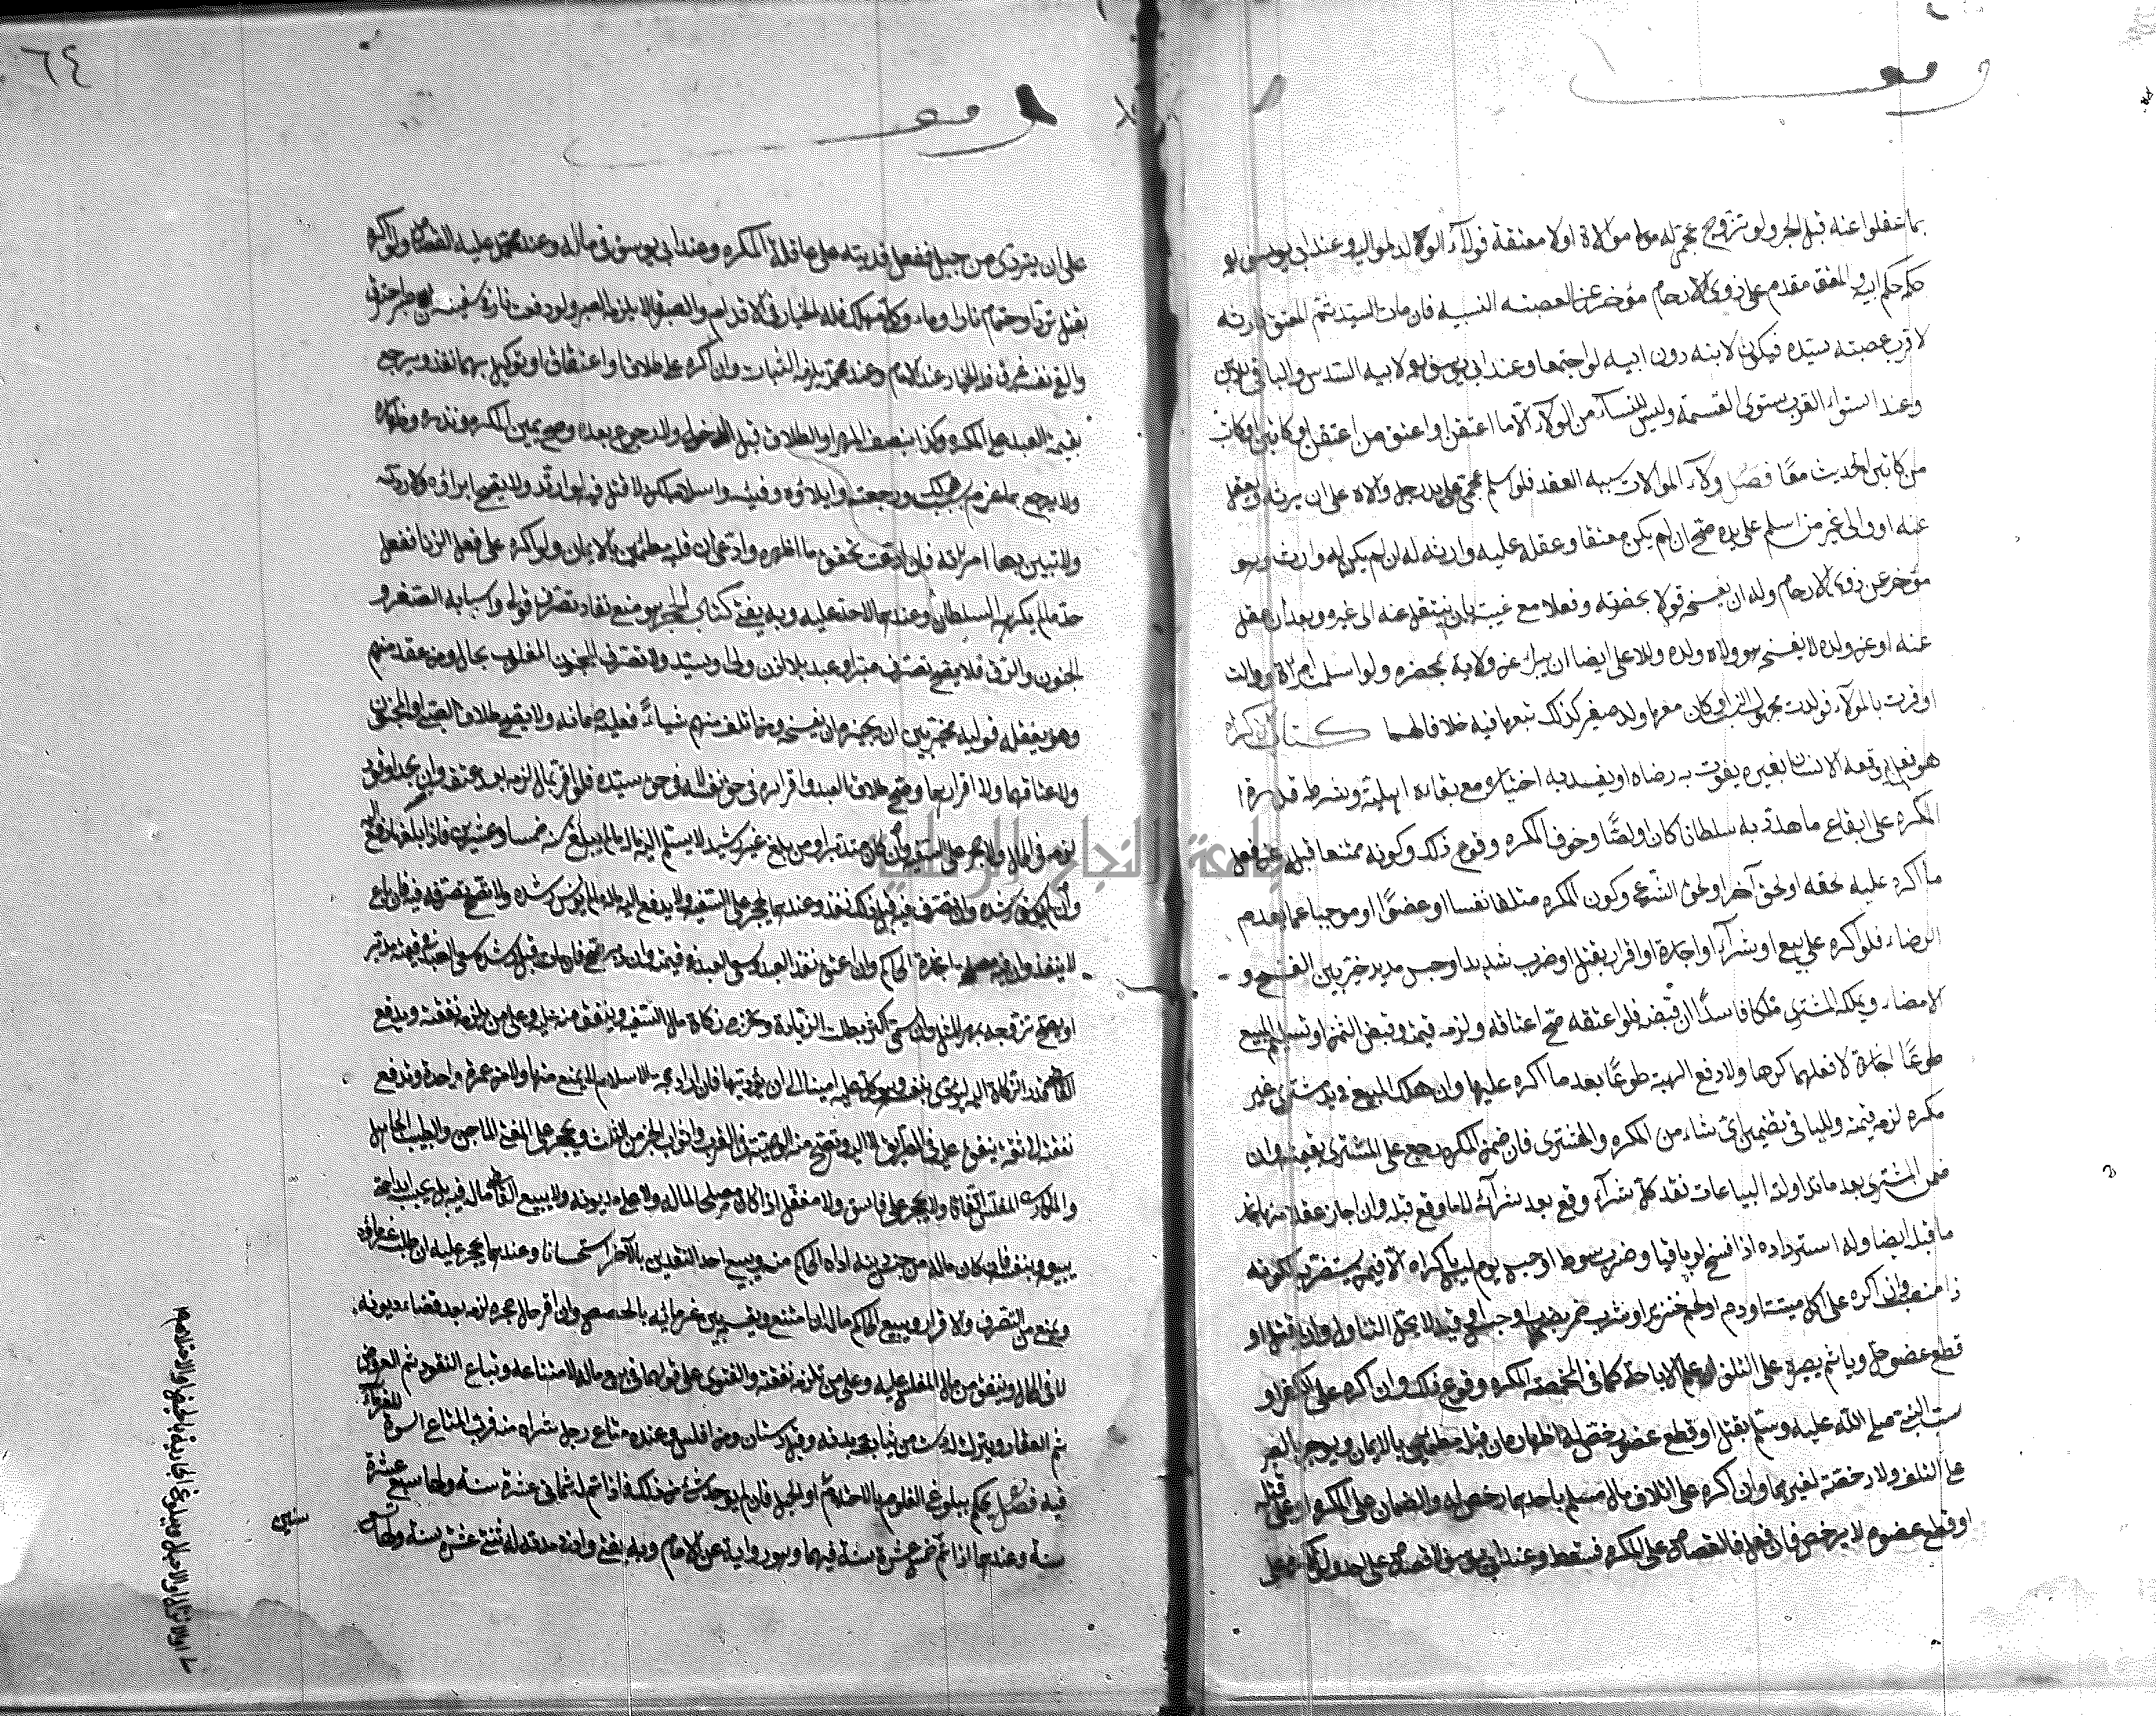 وقف
بما عقلوا عنه قبل الجر ولو تزوج عجمي له مولا موالاة اولا معتقة فولآء الولد لمواليها وعند ابي يوسف لو
حكمه حكم ابيه والمعتق مقدم على ذوى الارحام مؤخر عن العصبة النسبية فان مات السيد ثم المعتق فارثه
لاقرب عصبة سيده فيكون لابنه دون ابيه لو اجتمعا وعند ابي يوسف لابيه السدس والباقي للابن
وعند استواء القرب يستوى القسمة وليس للنسآء من الولآء الا ما اعتقن او اعتق من اعتقن او كاتبن او كاتب
من كاتبن الحديث معًا فصل ولآء الموالات سببه العقد فلو اسلم عجمي على يد رجل ووالاه على ان يرثه ويعقل
عنه او والى غير من اسلم على يده صح ان لم يكن معتقا وعقله عليه وارثه له ان لم يكن له وارث وهو
مؤخر عن ذوى الارحام وله ان يفسخه قولا بحضرته وفعلا مع غيبته بان ينتقل عنه الى غيره وبعد ان عقل
عنه او عن ولده لا يفسخ هو ولا ولده وللاعلى ايضا ان يبرأ عن ولائه بحضره ولو اسلمت امرأة ووالت
او اقرت بالولآء فولدت مجهول النسب او كان معها ولد صغير كذلك تبعها فيه خلافا لهما كتاب الاكراه
هو فعل يوقعه الانسان بغيره يفوت به رضاه او يفسد به اختياره مع بقاء اهليته وشرطه قدرة
المكره على ايقاع ما هدد به سلطانا كان او لصًّا وخوف المكره وقوع ذلك وكونه ممتنعا قبله عن فعل
ما اكره عليه لحقه او لحق آخر او لحق الشرع وكون المكره به متلفا نفسا او عضوًا او موجبا غما يعدم
الرضاء فلو اكره على بيع او شرآء او اجارة او اقرار بقتل او ضرب شديد او حبس مديد خير بين الفسخ و
الامضاء ويملكه المشترى ملكا فاسدًا ان قبضه فلو اعتقه صح اعتاقه ولزمه قيمته وقبض الثمن او تسليم المبيع
طوعًا اجازة لا فعلهما كرها ولا دفع الهبة طوعًا بعد ما اكره عليها وان هلك المبيع في يد مشترى غير
مكره لزمه قيمته وللبايع تضمين اى شاء من المكره والمشترى فان ضمن المكره رجع على المشترى بقيمته وان
ضمن المشترى بعد ما تداولته البياعات نفذ كل شرآء وقع بعد شرآئه لا ما وقع قبله وان اجاز عقدا منها نفذ
ما قبله ايضا وله استرداده اذا فسخ لو باقيا وضرب سوط او حبس يوم ليس باكراه الا فيمن يستضر به لكونه
ذا منصب وان اكره على اكل ميتة او دم او لحم خنزير او شرب خمر بضرب او حبس او قيد لا يحل التناول وان بقتل او
قطع عضو حل ويأثم بصبره على التلف ان علم الاباحة كما في المخمصة وان اكره على الكفر او
سب النبي صلى الله عليه وسلم بقتل او قطع عضو رخص له اظهاره وقلبه مطمئن بالايمان ويؤجر بالصبر
على التلف ولا رخصة لغيرهما وان اكره على اتلاف مال مسلم باحدهما رخص له والضمان على المكره او على قتله
او قطع عضوه لا يرخص فان فعل فالقصاص على المكره فقط وعند ابي يوسف لا قصاص على احد ولو اكره على
٦٤
وقف
على ان يتردى من جبل ففعل فديته على عاقلة المكره وعند ابي يوسف في ماله وعند محمد عليه القصاص ولو اكره
بقتل ترد او اقتحام نار او ماء وكل مهلك فله الخيار في الاقدام والصبر وقالا يلزمه الصبر ولو وقعت نار في سفينة ان صبر احترق
والق نفسه غرق فله الخيار عند الامام وعند محمد يلزمه الثبات وان اكره على طلاق او اعتاق او توكيل بهما نفذ ويرجع
بقيمة العبد على المكره وكذا بنصف المهر لو الطلاق قبل الدخول ولا رجوع بعده وصح يمين المكره ونذره وظهاره
ولا يرجع بما غرم بسبب ذلك ورجعته وايلاؤه وفيئه واسلامه لكن لا قتل فيه لو ارتد ولا يصح ابراؤه ولا ردته
ولا تبين بها امرأته فان ادعت تحقق ما اظهره وادعى ان قلبه مطمئن بالايمان ولو اكره على فعل الزنا ففعل
حد ما لم يكرهه السلطان وعندهما لا حد عليه وبه يفتى كتاب الحجر هو منع نفاذ تصرف قولي واسبابه الصغر و
الجنون والرق فلا يصح تصرف صبي او عبد بلا اذن ولي او سيد ولا تصرف المجنون المغلوب بحال ومن عقد منهم
وهو يعقله فوليه مخير بين ان يجيزه او يفسخه وما اتلف منهم شيئاً فعليه ضمانه ولا يصح طلاق الصبي والمجنون
ولا عتاقهما ولا اقرارهما وصح طلاق العبد واقراره في حق نفسه لا في حق سيده فلو اقر بمال لزمه بعد عتقه وان بحد او قود
لزمه في الحال ولا يحجر على السفيه وان كان مبذرا ومن بلغ غير رشيد لا يسلم اليه ماله ما لم يبلغ سنه خمسا وعشرين فاذا بلغها دفع اليه
وان لم يؤنس رشده وان تصرف فيه قبل ذلك نفذ وعندهما يحجر على السفيه ولا يدفع اليه ماله ما لم يؤنس رشده ولا يصح تصرفه فيه فان باع
لا ينفذ وان فيه مصلحة اجازه الحاكم وان اعتق نفذ العبد وسعى العبد في قيمته وان دبر صح فان مات قبل رشده سعى العبد في قيمته مدبر
او يصح تزوجه بمهر المثل وان سمى اكثر بطلت الزيادة وتخرج زكاة مال السفيه وينفق منه عليه وعلى من يلزمه نفقته ويدفع
القاضي قدر الزكاة اليه ليؤدى بنفسه ويوكل عليه امينا الى ان يؤديها فان اراد حجة الاسلام لا يمنع منها ولا من عمرة واحدة وتدفع
نفقته الى ثقة ينفق عليه في الطريق لا اليه وتصح منه الوصية في القرب وابواب الخير من الثلث ويحجر على المفتى الماجن والطبيب الجاهل
والمكارى المفلس اتفاقا ولا يحجر على فاسق ولا مغفل اذا كان مصلحا لماله ولا على مديونه ولا يبيع القاضي ماله فيه بل يحبسه ابدا حتى
يبيع هو بنفسه فان كان ماله من جنس دينه اداه الحاكم منه ويبيع احد النقدين بالآخر استحسانا وعندهما يحجر عليه ان طلب غرماؤه
ويمنع من التصرف والاقرار ويبيع الحاكم ماله ان امتنع ويقسمه بين غرمائه بالحصص وان اقر حال حجره لزمه بعد قضاء ديونه
لا في الحال وينفق من مال المفلس عليه وعلى من تلزمه نفقته والفتوى على قولهما في بيع ماله لامتناعه وتباع النقود ثم العروض
ثم العقار ويترك له دست من ثياب بدنه وقيل دستان ومن افلس وعنده متاع رجل شراه منه فرب المتاع اسوة للغرماء
فيه فصل يحكم ببلوغ الغلام بالاحتلام او الانزال او الاحبال فان لم يوجد شئ من ذلك فاذا تم له ثماني عشرة سنة ولها سبع عشرة
سنة وعندهما اذا تم خمس عشرة سنة فيهما وهو رواية عن الامام وبه يفتى وادنى مدته له ثنتى عشرة سنة ولها تسع
سنين